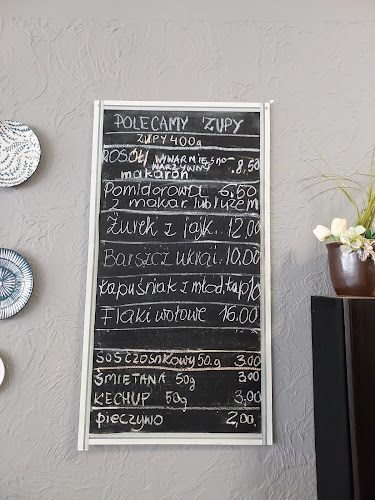 POLECAMY ZUPY
ZUPY 400g
ROSÓŁ WYWAR MIĘSNO-
WARZYWNY 8,50
makaron
Pomidorowa 6,50
z makar lub ryżem
Żurek z jajk. 12,00
Barszcz ukrai. 10,00
kapuśniak z młod. kap 10
Flaki wołowe 16.00
SOS CZOSNKOWY 50.g 3.00
ŚMIETANA 50g 3,00
KECHUP 50g 3,00
pieczywo 2,00.